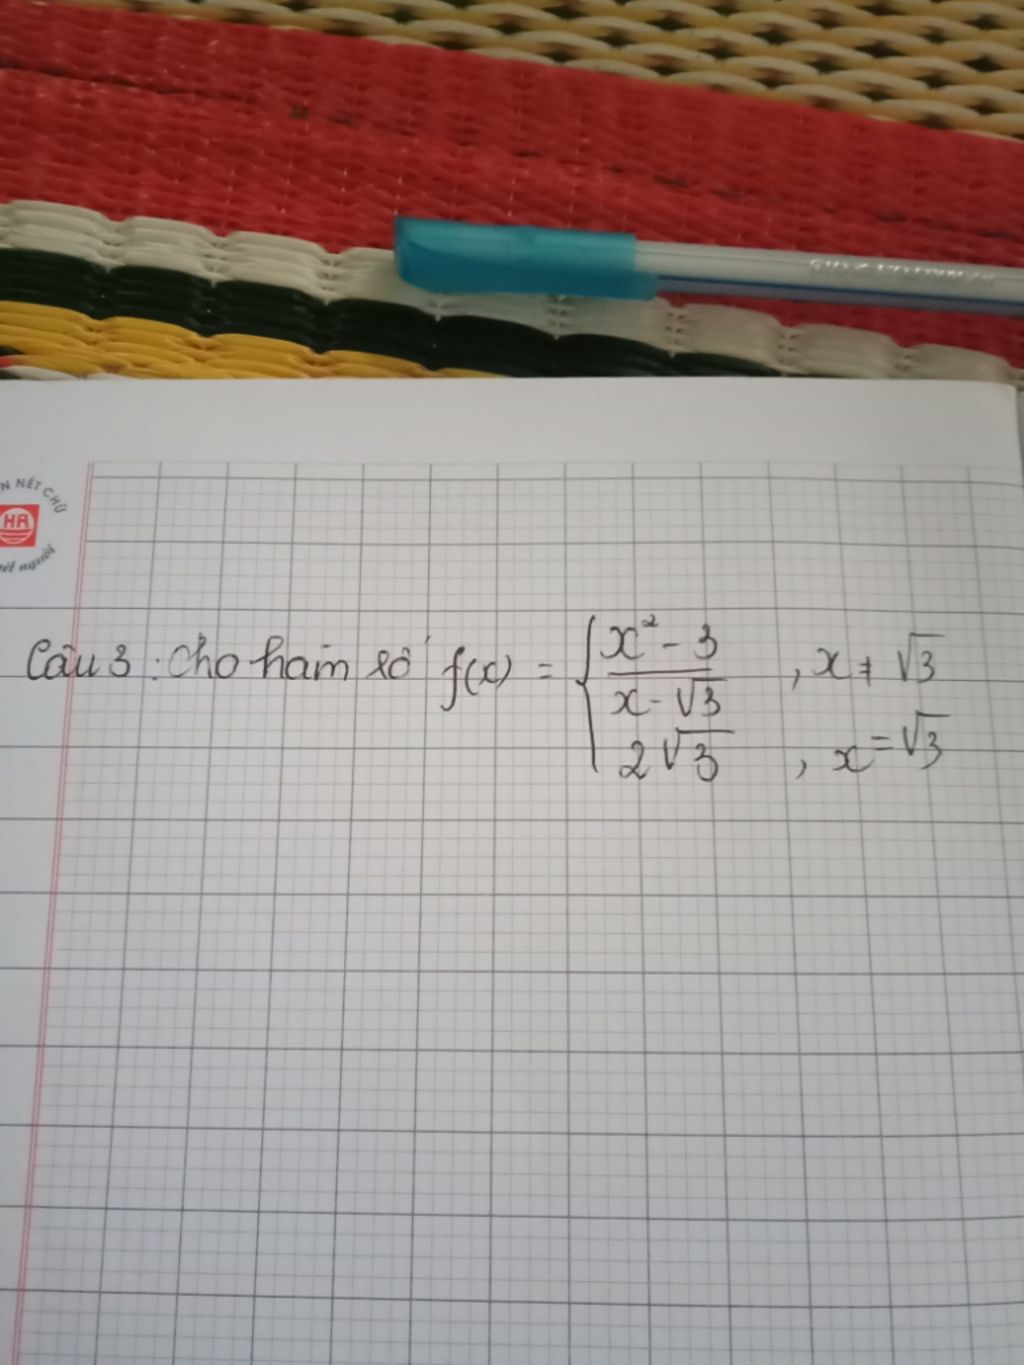 N NÉT CHỮ
HA
nét người
Câu 3: Cho hàm số f(x) = { x² - 3 / x - √3 , x ≠ √3
2√3 , x = √3